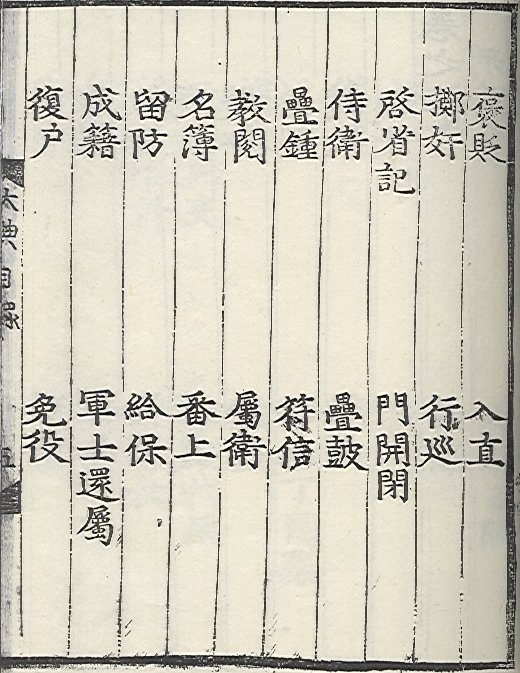 褒貶 入直
擲奸 行巡
啓省記 門開閉
侍衛 疊鼓
疊鍾 符信
敎閱 屬衛
名簿 番上
留防 給保
成籍 軍士還屬
復户 免役
大典目錄 五